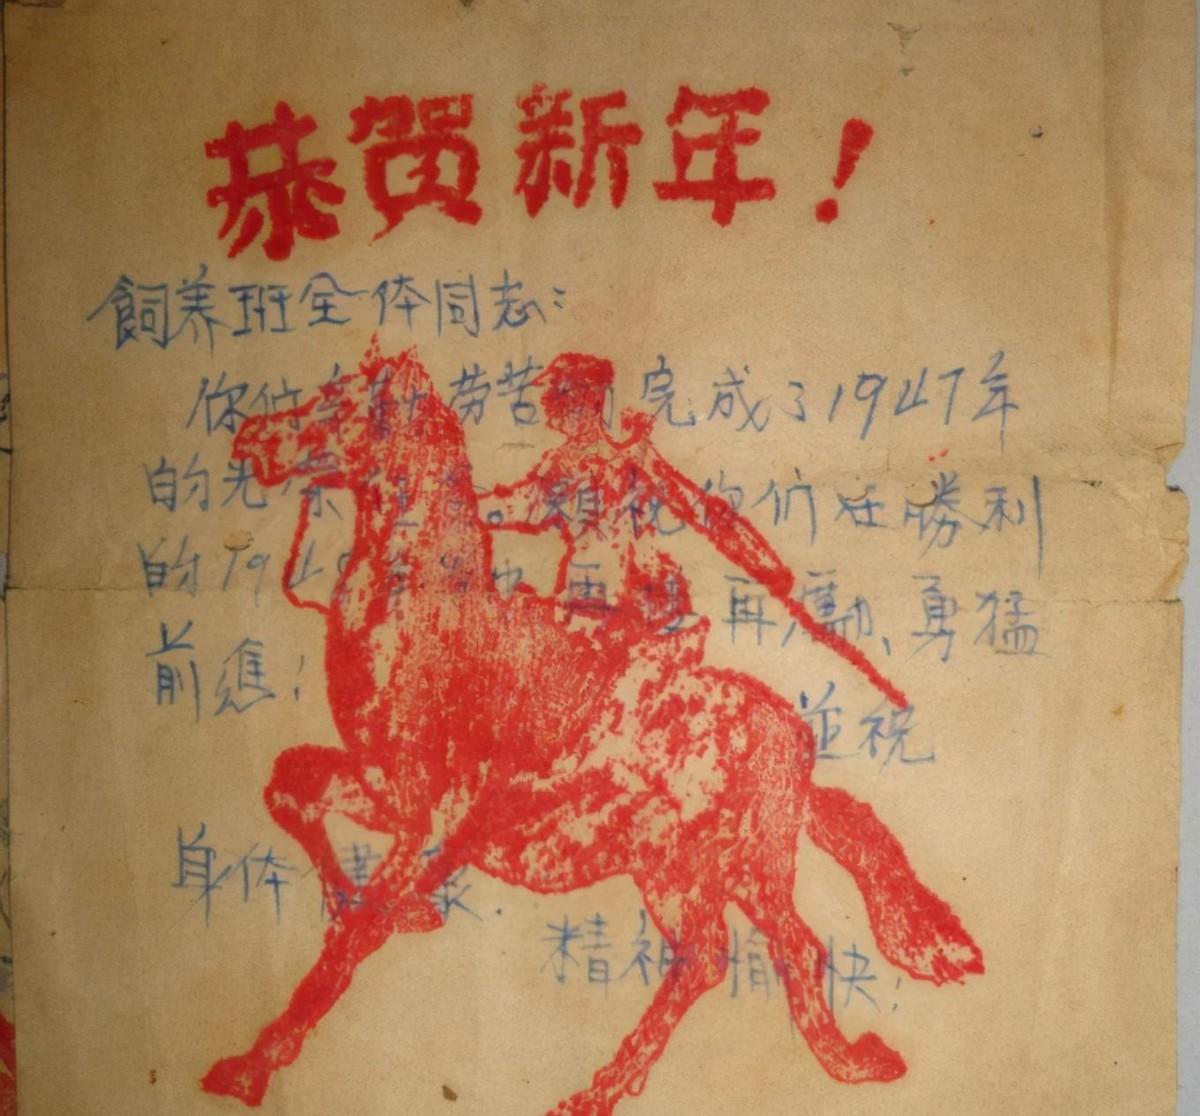 恭贺新年!
飼养班全体同志:
你们辛勤劳苦的完成了1947年
的光荣任务。願祝你们在勝利
的1948年当中再接再厲、勇猛
前進!
並祝
身体健康.
精神愉快!